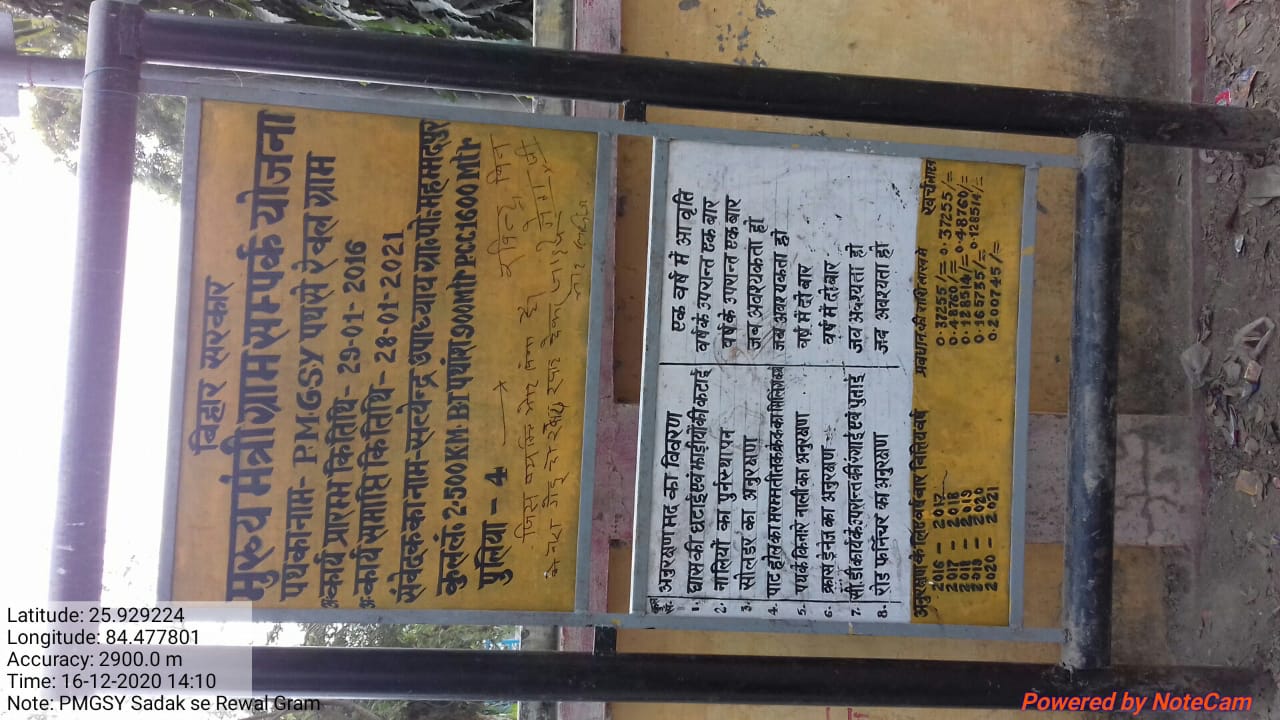 बिहार सरकार
मुख्य मंत्री ग्राम सम्पर्क योजना
पथ का नाम- PMGSY पथ से रेवल ग्राम
कार्य प्रारम्भ कि तिथि- 29-01-2016
कार्य समाप्ति कि तिथि- 28-01-2021
संवेदक का नाम- सत्येन्द्र उपाध्याय ग्रा०पो:-महमदपुर
कुल लं० 2.500KM BT पथांश 900Mtr PCC 1600Mtr
पुलिया - 4
अनुरक्षण मद का विवरण एक वर्ष में आवृति
1. घास की छटाई एवं झाड़ीयों की कटाई वर्ष के उपरान्त एक बार
2. नालियों का पुर्नस्थापन वर्ष के उपरान्त एक बार
3. सोल्डर का अनुरक्षण जब अवश्यकता हो
4. पाट होल का मरम्मती जब अवश्यकता हो
5. पथ के किनारे नाली का अनुरक्षण वर्ष में दो बार
6. क्रास ड्रेनेज का अनुरक्षण वर्ष में दो बार
7. सी डी कार्य के उपरान्त की रंगाई एवं पुताई जब अवश्यता हो
8. रोड फर्निचर का अनुरक्षण जब अवश्यता हो
अनुरक्षण के लिए वर्ष वार वित्तिय वर्ष प्रवधान की राशि लाख में
2016 - 2017 0.37255/= 0.37255/=
2017 - 2018 0.48760/= 0.48760/=
2018 - 2019 0.128514/= 0.128514/=
2019 - 2020 0.168735/=
2020 - 2021 0.200745/=
Latitude: 25.929224
Longitude: 84.477801
Accuracy: 2900.0 m
Time: 16-12-2020 14:10
Note: PMGSY Sadak se Rewal Gram
Powered by NoteCam